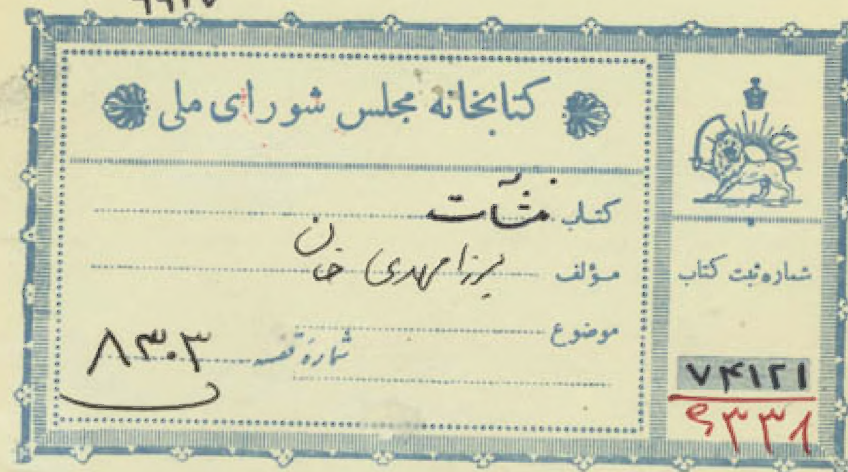 کتابخانه مجلس شورای ملی
کتاب منشآت
مؤلف میرزا مهدی خان
موضوع
شماره قفسه ۸۳۰۳
شماره ثبت کتاب
۷۴۱۲۱